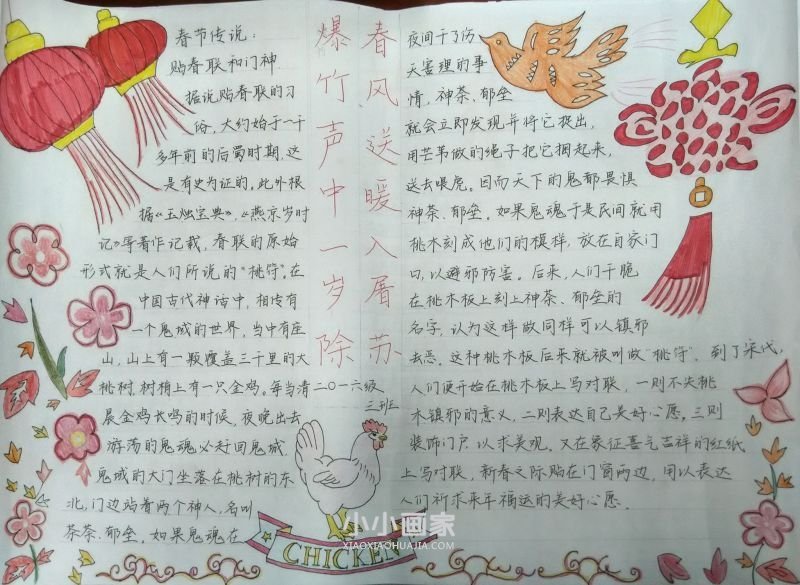 春节传说:
贴春联和门神
据说贴春联的习
俗,大约始于一千
多年前的后蜀时期,这
是有史为证的。此外根
据《玉烛宝典》,《燕京岁时
记》等著作记载,春联的原始
形式就是人们所说的“桃符”。在
中国古代神话中,相传有
一个鬼域的世界,当中有座
山,山上有一颗覆盖三千里的大
桃树,树梢上有一只金鸡。每当清
晨金鸡长鸣的时候,夜晚出去
游荡的鬼魂必赶回鬼域。
鬼域的大门坐落在桃树的东
北,门边站着两个神人,名叫
荼荼、郁垒。如果鬼魂在
爆竹声中一岁除
春风送暖入屠苏
二〇一六级
三班
夜间干了伤
天害理的事
情,神荼、郁垒
就会立即发现并将它捉出,
用芒苇做的绳子把它捆起来,
送去喂虎。因而天下的鬼都畏惧
神荼、郁垒。如果鬼魂于是民间就用
桃木刻成他们的模样,放在自家门
口,以避邪防害。后来,人们干脆
在桃木板上刻上神荼、郁垒的
名字,认为这样做同样可以镇邪
去恶。这种桃木板后来就被叫做“桃符”。到了宋代,
人们便开始在桃木板上写对联,一则不失桃
木镇邪的意义,二则表达自己美好心愿。三则
装饰门户,以求美观。又在象征喜气吉祥的红纸
上写对联,新春之际贴在门窗两边,用以表达
人们祈求来年福运的美好心愿.
CHICKEN
小小画家
XIAOXIAOHUAJIA.COM